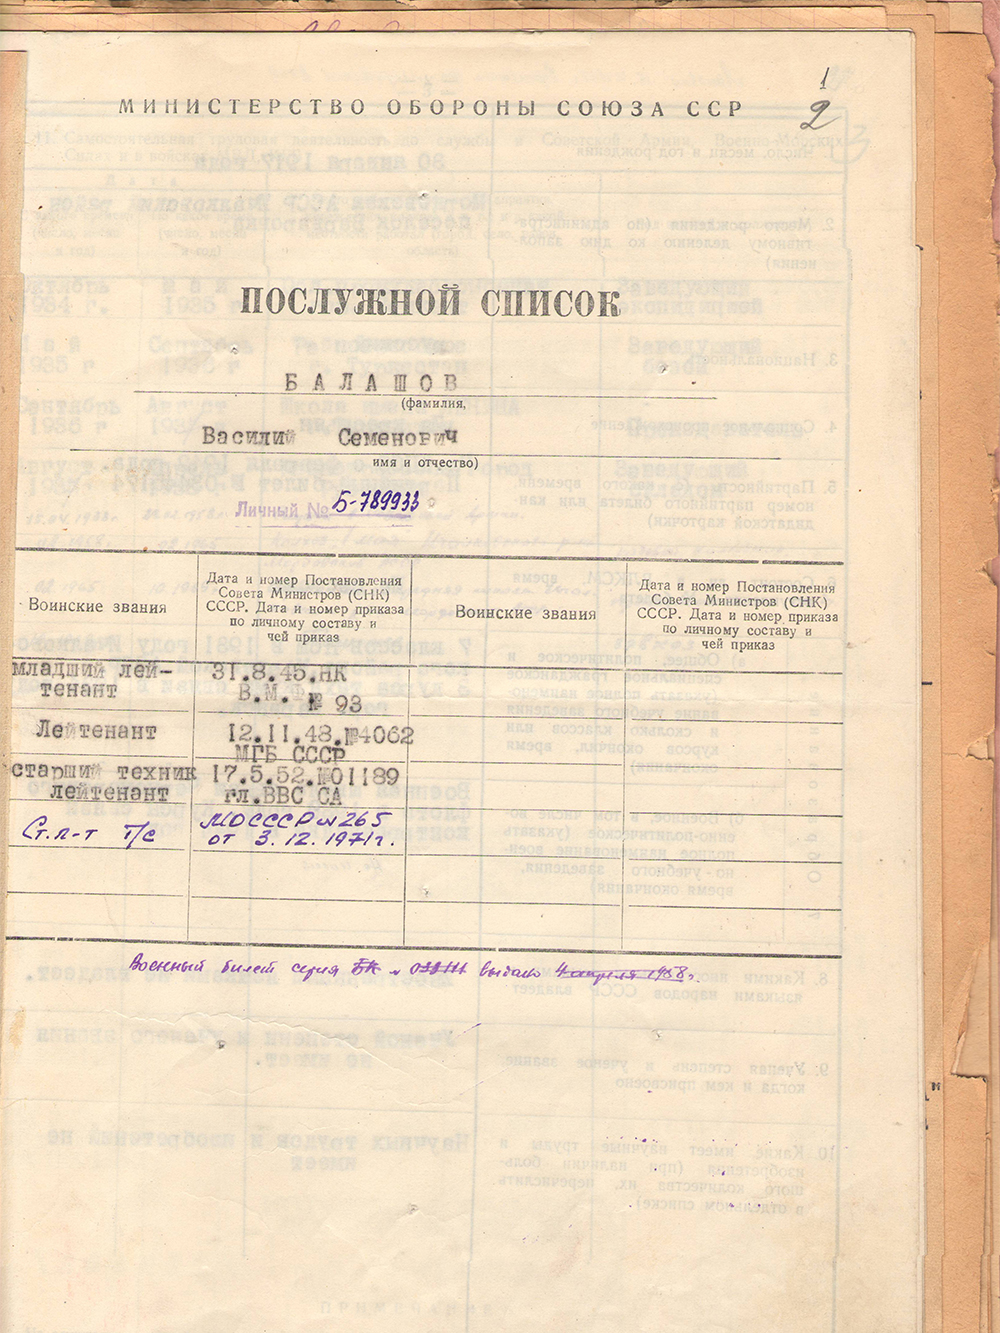 1
2
МИНИСТЕРСТВО ОБОРОНЫ СОЮЗА ССР
ПОСЛУЖНОЙ СПИСОК
БАЛАШОВ
(фамилия,
Василий Семенович
имя и отчество)
Личный № Б-789933
Воинские звания
Дата и номер Постановления
Совета Министров (СНК)
СССР. Дата и номер приказа
по личному составу и
чей приказ
Воинские звания
Дата и номер Постановления
Совета Министров (СНК)
СССР. Дата и номер приказа
по личному составу и
чей приказ
младший лей-
тенант
31.8.45.НК
В.М.Ф. № 93
Лейтенант
12.11.48.№4062
МГБ СССР
старший техник
лейтенант
17.5.52.№01189
гл.ВВС СА
Ст. л-т т/с
МО СССР № 265
от 3.12.1971г.
Военный билет серия БК № выдан 4 апреля 1958г.